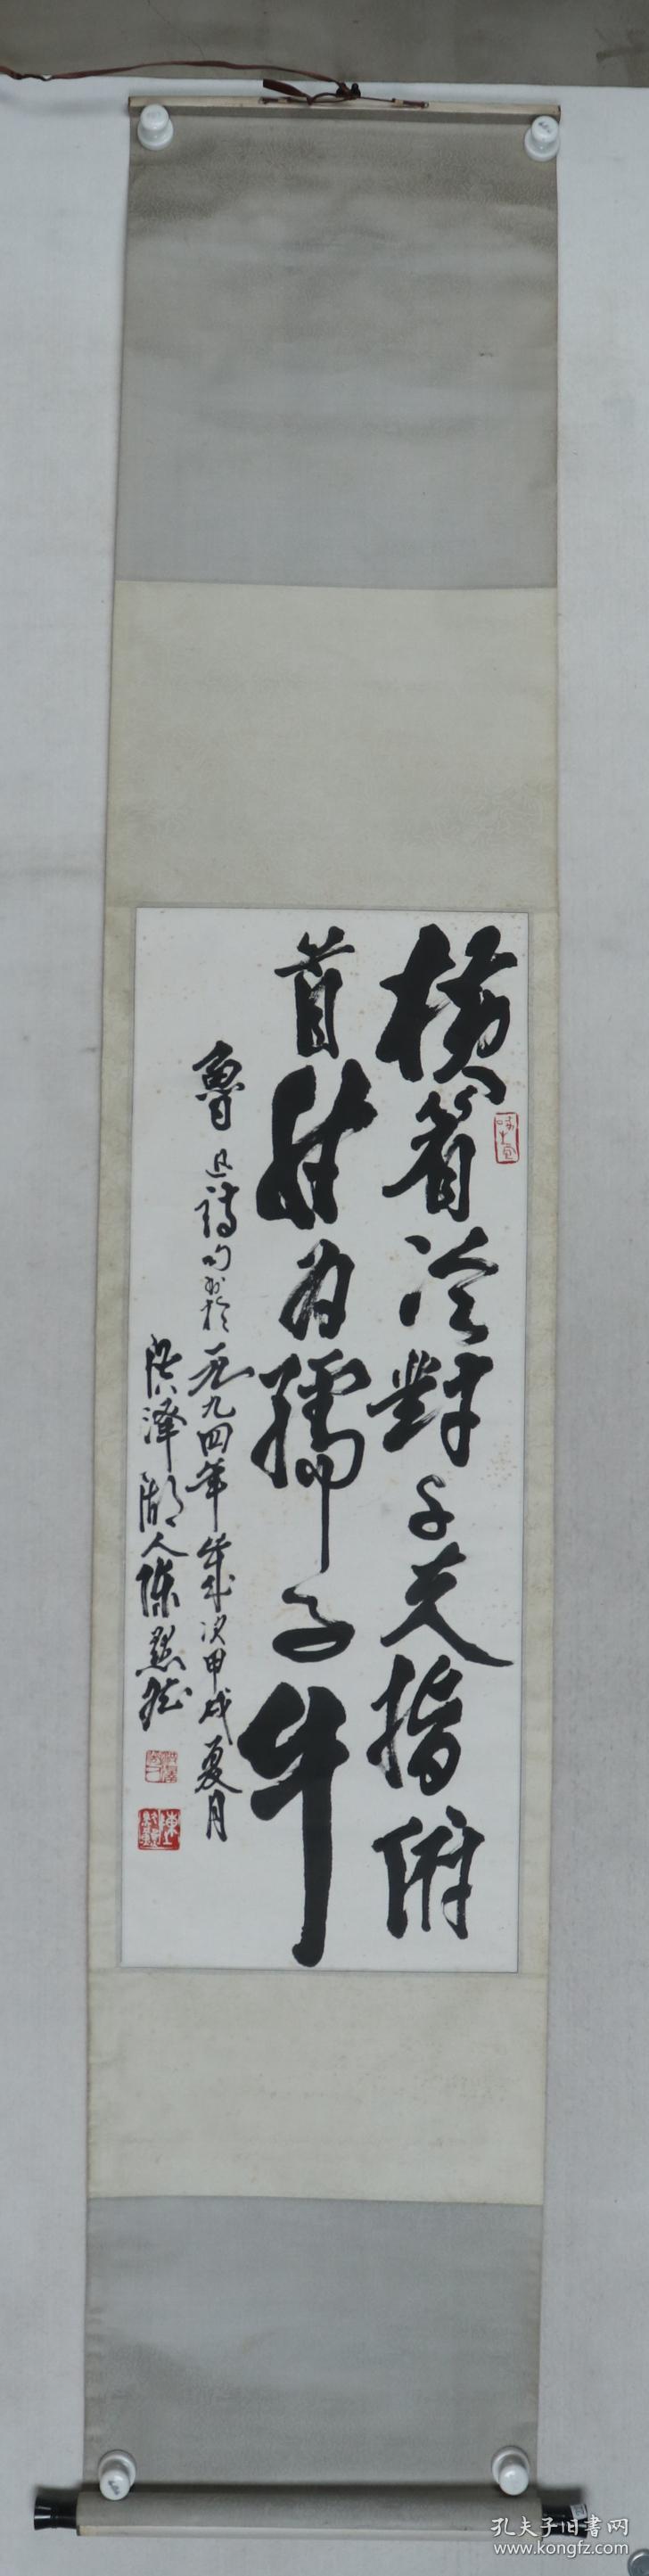 横眉冷對千夫指俯
首甘为孺子牛
魯迅詩句书於一九九四年岁次甲戌夏月
洪泽湖人陈
孔夫子旧書网
www.kongfz.com